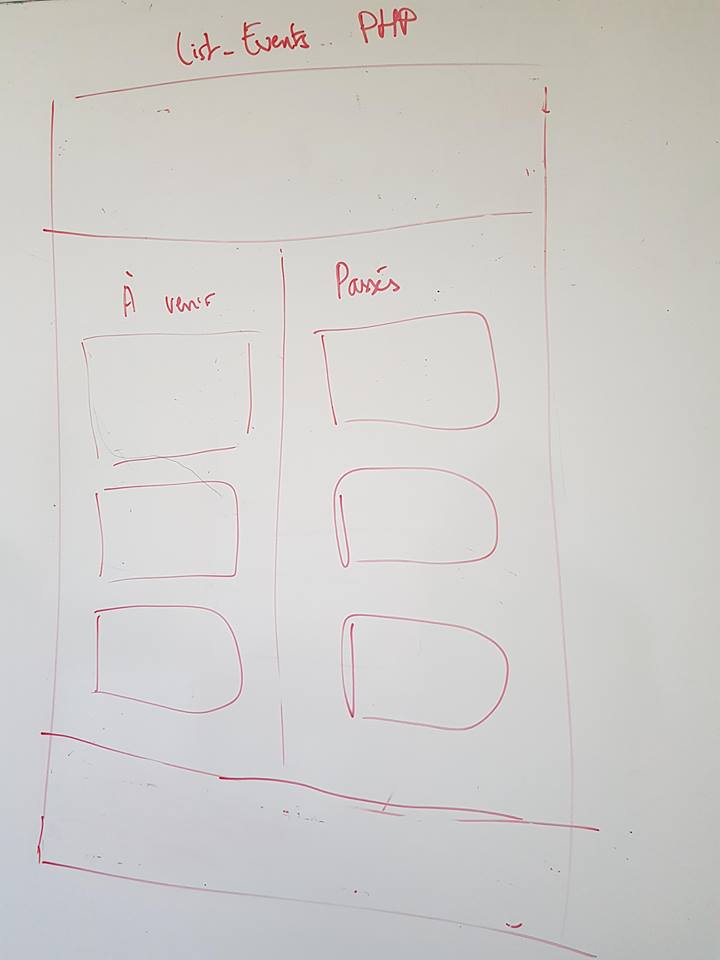 List_Events.. PHP
À venir
Passés